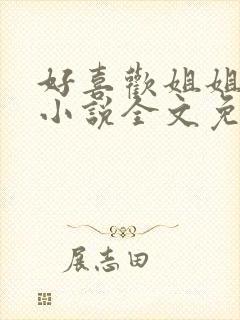 好喜歡姐姐
小說全文免
展志田